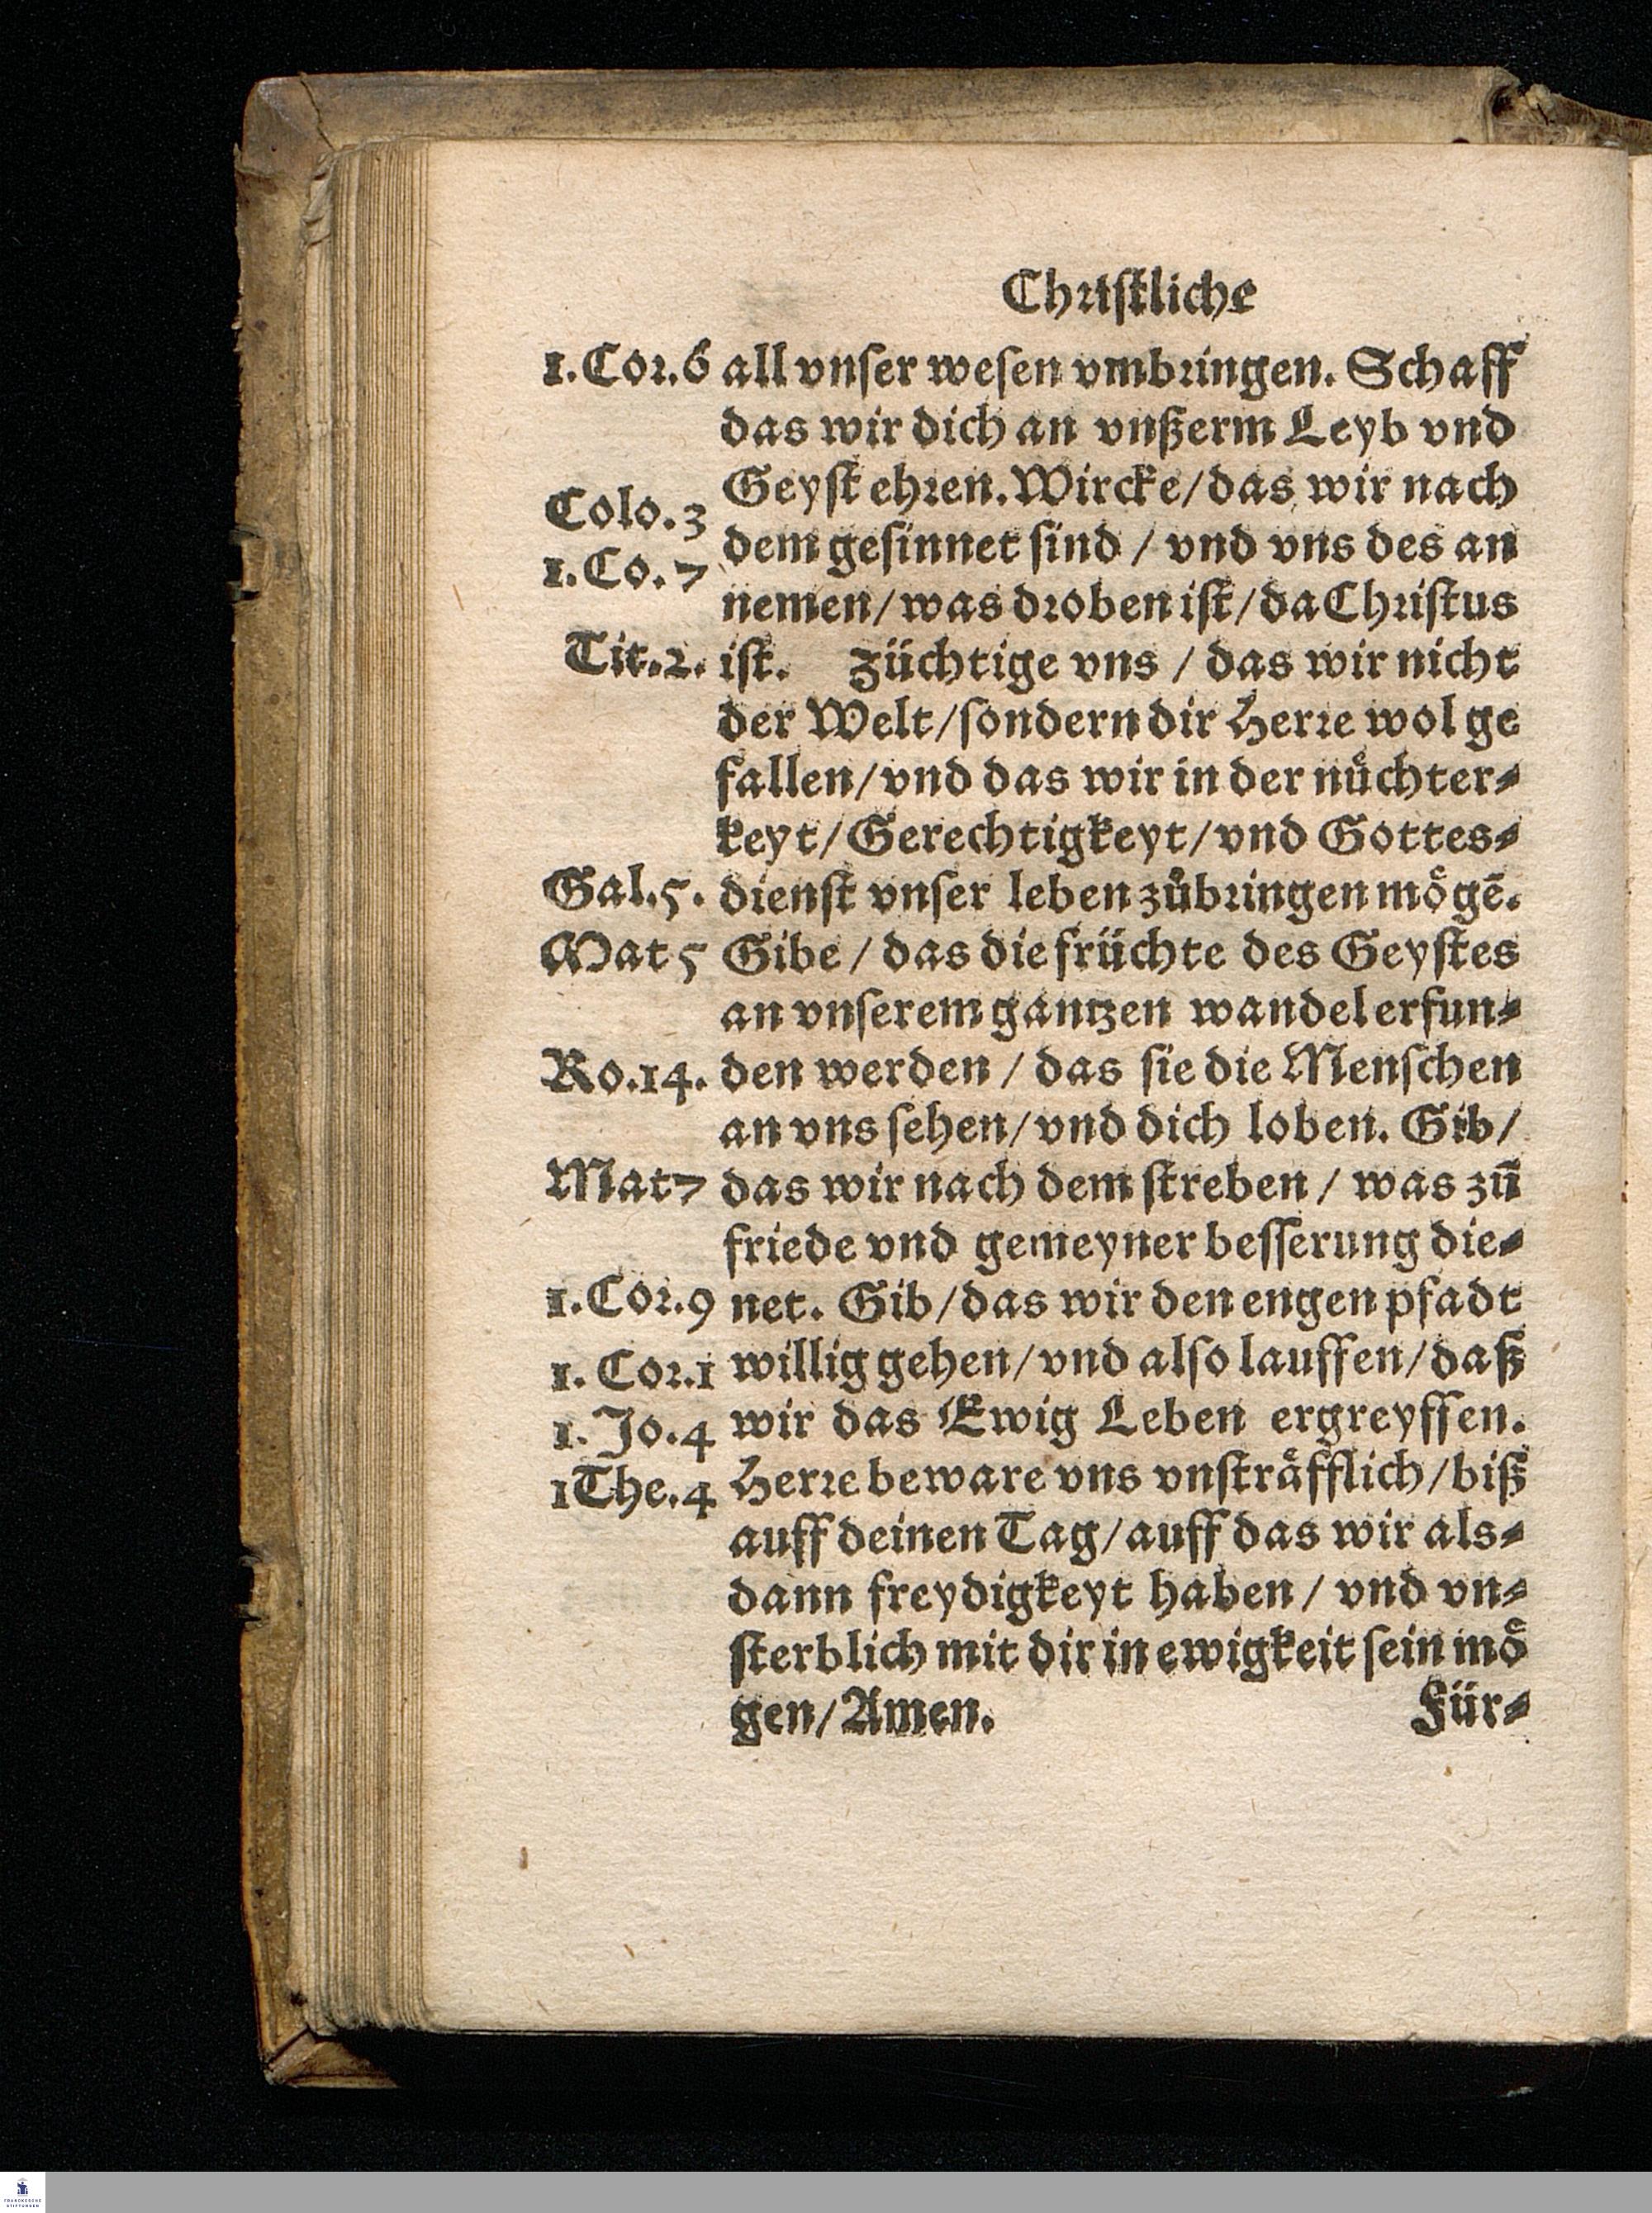 Chriſtliche
1.Cor.6 all vnſer weſen vmbringen. Schaff
das wir dich an vnßerm Leyb vnd
Geyſt ehren. Wircke/das wir nach
Colo.3
dem geſinnet ſind / vnd vns des an
1.Co.7
nemen/was droben iſt/da Chriſtus
Tit.2. iſt. Züchtige vns / das wir nicht
der Welt/ſondern dir Herre wol ge
fallen/vnd das wir in der nuͤchter⸗
keyt/Gerechtigkeyt/vnd Gottes⸗
Gal.5. dienſt vnſer leben zůbringen moͤgē.
Mat 5 Gibe / das die früchte des Geyſtes
an vnſerem gantzen wandel erfun⸗
Ro.14. den werden / das ſie die Menſchen
an vns ſehen/vnd dich loben. Gib/
Mat7 das wir nach dem ſtreben / was zū
friede vnd gemeyner beſſerung die⸗
1.Cor.9 net. Gib/das wir den engen pfadt
1. Cor.1 willig gehen/vnd alſo lauffen/daß
1. Jo.4 wir das Ewig Leben ergreyffen.
1The.4 Herre beware vns vnſtraͤfflich/biß
auff deinen Tag/auff das wir als⸗
dann freydigkeyt haben / vnd vn⸗
ſterblich mit dir in ewigkeit ſein moͤ
gen/Amen. Für⸗
FRANCKESCHE
STIFTUNGEN